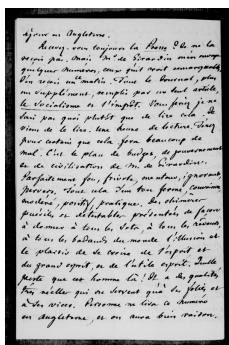 séjour en Angleterre.
Recevez-vous toujours la Presse ? Je ne la
reçois pas. Mais Mr de Girardin m'en envoye
quelques numéros, ceux qu'il croit remarquables.
J'en reçois un ce matin. Tout le journal, plus
un supplément, remplis par un seul article,
le Socialisme et l'impôt. Vous pensez je ne
sais pas quoi plutôt que de lire cela. Je
viens de le lire. Une heure de lecture. Tenez
pour certain que cela fera beaucoup de
mal. C'est le plan de budget, de gouvernement
et de civilisation de Mr de Girardin.
Parfaitement fou, frivole, menteur, ignorant,
pervers. Tout cela d'un ton ferme, convaincu,
modéré, positif, pratique. Des chimères
puériles et détestables présentées de façon
à donner à tous les sots, à tous les rêveurs,
à tous les badauds du monde l'illusion et
le plaisir de se croire de l'esprit et
du grand esprit, et de l'utile esprit. Quelle
perte que cet homme là ! Il a des qualités
très réelles qui ne servent qu'à ses folies et
à ses vices. Personne ne lira ce numéro
en Angleterre, et on aura bien raison.